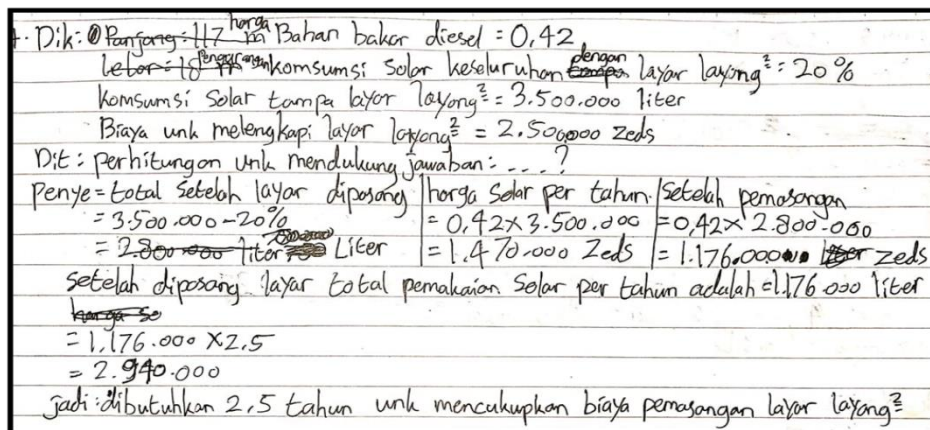 1. Dik: Panjang: 117 m harga Bahan bakar diesel = 0,42
Lebar = 18 m Pengurangan komsumsi Solar keseluruhan dengan layar layang² = 20%
komsumsi Solar tampa layar layang² = 3.500.000 liter
Biaya unk melengkapi layar layang² = 2.500.000 Zeds
Dit : perhitungan unk mendukung jawaban : .... ?
Penye = total setelah layar diposang | horga Solar per tahun. | Setelah pemasangan
= 3.500.000 - 20% | = 0,42 x 3.500.000 | = 0,42 x 2.800.000
= 2.800.000 liter Liter | = 1.470.000 Zeds | = 1.176.000 zeds
Setelah diposang layar total pemakaian Solar per tahun adalah = 1.176 000 liter
harga so
= 1.176.000 x 2,5
= 2.940.000
jadi : dibutuhkan 2,5 tahun unk mencukupkan biaya pemasangan layar layang²